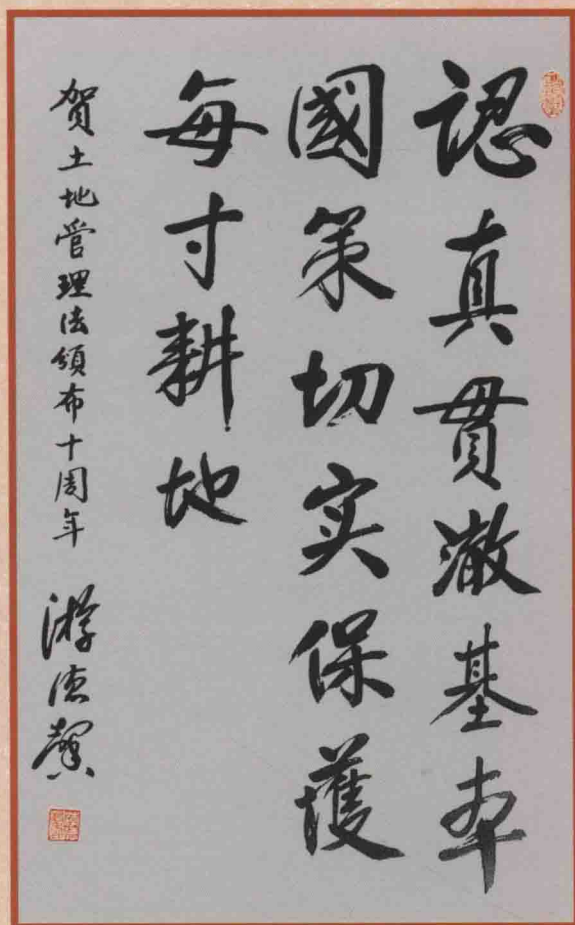 認真贯澈基本
國策切实保護
每寸耕地
贺土地管理法颁布十周年
游德馨